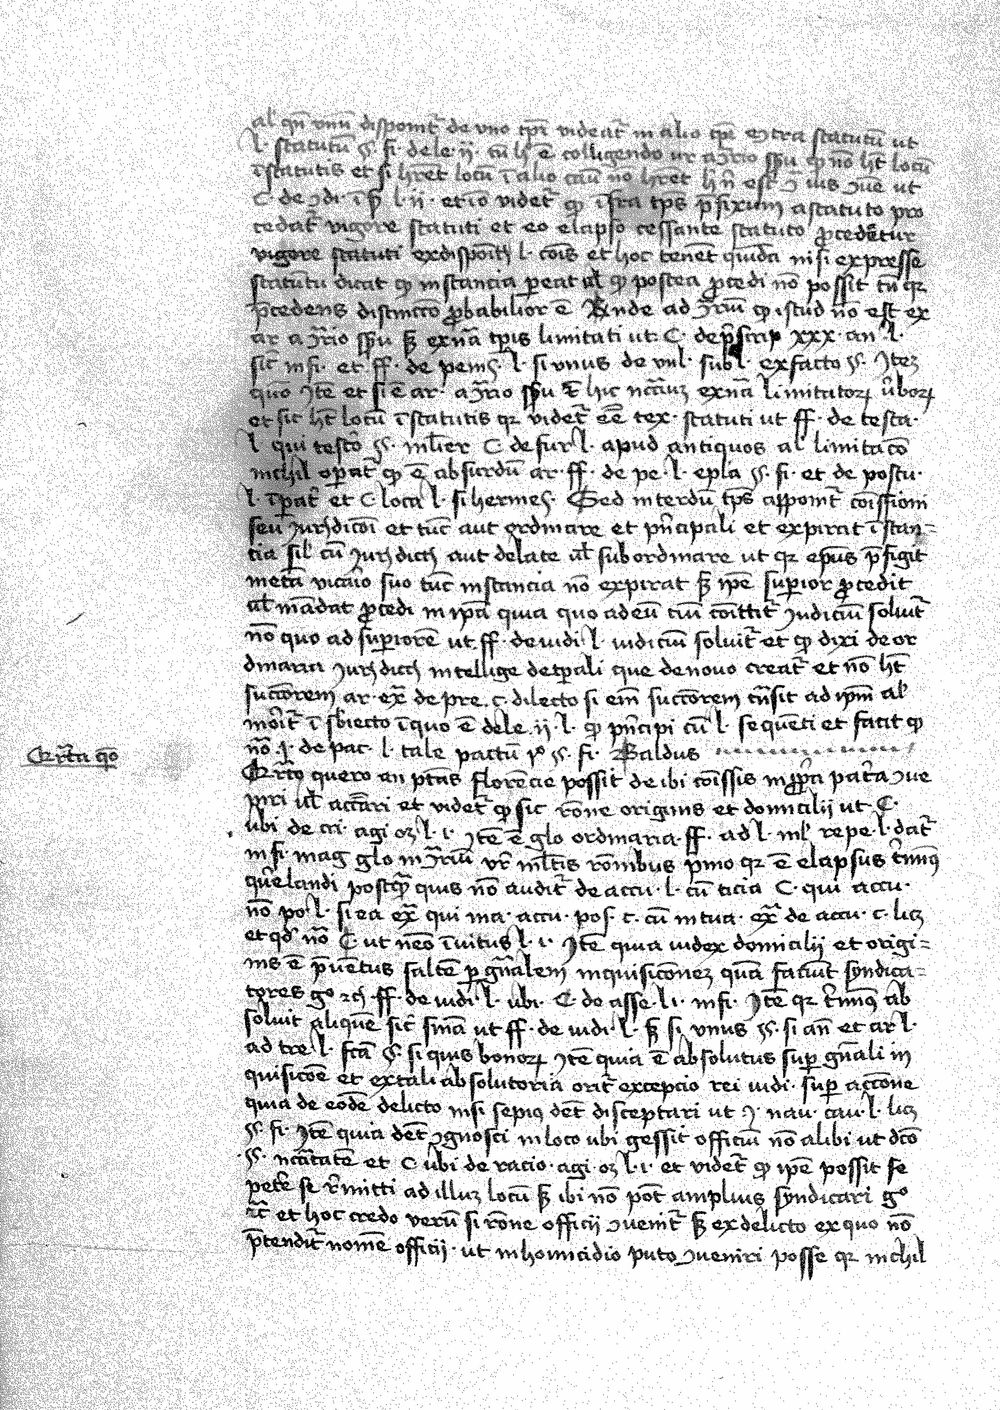 al' qn̄ vnū disponit̄ de vno tp̄r videat̄ in alio tp̄r extra statutū ut
l. statutū §. fi. de le. ij. cū h̄ ē colligendo ur a ɔ̄rio sn̄su qꝫ nō ht̄ locū
ī statutis et si hr̄et locū ī alio casu nō hr̄et
C de et iō videt̄ qꝫ īfra tp̄s p̄fixum a statuto pro
cedat̄ vigore statuti et eo elapso cessante statuto ꝓcedētur
vigore statuti ex l. cōis et hoc tenēt quidā nisi expresse
statutū dicat qꝫ instancia pereat ul' qꝫ postea ꝓcedi nō possit tn̄ qꝛ
p̄cedens distinctō ꝓbabilior ē Unde ad ɔ̄riū qꝫ istud nō est ex
ar a ɔ̄rio sn̄su sꝫ ex nā tp̄ris limitati ut C. de p̄scrip xxx. an. l.
sic̄ in fi. et ff. de l. si unus de sub l. ex facto §. Itē
quō Itē et si ē ar. a ɔ̄rio sn̄su hic ex nā limitatoꝝ ūboꝝ
et sic ht̄ locū ī statutis qꝛ videt̄ eē tex. statuti ut ff. de testa.
l qui testō §. ml̄ier C de fur l. apud antiquos al' limitacō
nichil opat̄ qꝫ ē absurdū ar. ff. de pe. l. epl̄a §. fi. et de postu.
l. īpat̄ et C loca l. si hermes. Sed interdū tp̄s apponit̄ cōissioni
seu iurisdicōi et tūc aut ordinare et p̄ncipali et expirat īstan=
cia sil' cū aut delate ul' subordinare ut qꝛ ep̄us p̄figit
metā vicario suo tūc instancia nō expirat sꝫ ip̄e superior ꝓcedit
ul' mādat ꝓcedi in ip̄a quia quo ad eū cui cōittit̄ iudiciū soluit̄
nō quo ad superiorē ut ff. de iudi. l. iudiciū soluit̄ et qꝫ dixi de or
dinaria intellige de tp̄ali que de novo creat̄ et nō ht̄
succorem ar. ex̄ de pre. c. dilecto si em̄ succorem tn̄sit ad ip̄m al'
morit̄ ī sbiecto ī quo ē de le. ij. l. qꝫ p̄ncipi cū l. sequēti et facit qꝫ
nō. de pac. l. tale pactū §. fi. Baldus
Qr̄ta qō
Qr̄to quero an ptās florencie possit de ibi cōissis in ꝓpa patia ɔue
niri ul' accūari et videt̄ qꝫ sic rōne originis et domicilij ut C.
ubi de cri. agi oꝫ l. i. Itē ē glo ordinaria. ff. ad l. iul' repe. l. dat̄
in fi. mag glo in ɔ̄riū vr̄ ml̄tis rōnibus p̄mo qꝛ ē elapsus t̄minꝰ
qūelandi postqꝫ quis nō audit̄ de accu. l. cū ticia C. qui accu.
nō po l. si ea ex̄ qui ma. accu. pos. c. cū in tua. ex̄ de accu. c. licꝫ
et qd̄ nō C ut nēo īuitus l. i. Itē quia iudex domicilij et origi=
nis ē p̄uentus saltē p gn̄alem inquisicōnez quā faciūt syndica=
tores gͦ ff. de iudi. l. ubi. C de asse. l. i. in fi. Itē qꝛ t̄minꝰ ab
soluit aliquē sic̄ sn̄ia ut ff. de iudi. l. sꝫ si vnus §. si an̄ et ar l.
ad tre l. fctā §. si quis bonoꝝ Itē quia ē absolutus super gn̄ali in
quisicōe et ex tali absolutoria orit̄ excepcio rei iudi. super accōne
quia de eodē delicto nisi sepiꝰ dēt disceptari ut nau. cau. l. licꝫ
§. fi. Itē quia dēt ɔgnosci in loco ubi gessit officiū nō alibi ut dcō
§. et C ubi de racio. agi. oꝫ l. i. et videt̄ qꝫ ip̄e possit se
petē se r̄mitti ad illuꝫ locū sꝫ ibi nō pōt amplius syndicari gͦ
et hoc credo verū si rōne officij ɔuenit̄ sꝫ ex delicto ex quo nō
p̄tendit̄ nomē officij. ut in homicidio puto ɔueniri posse qꝛ nichil